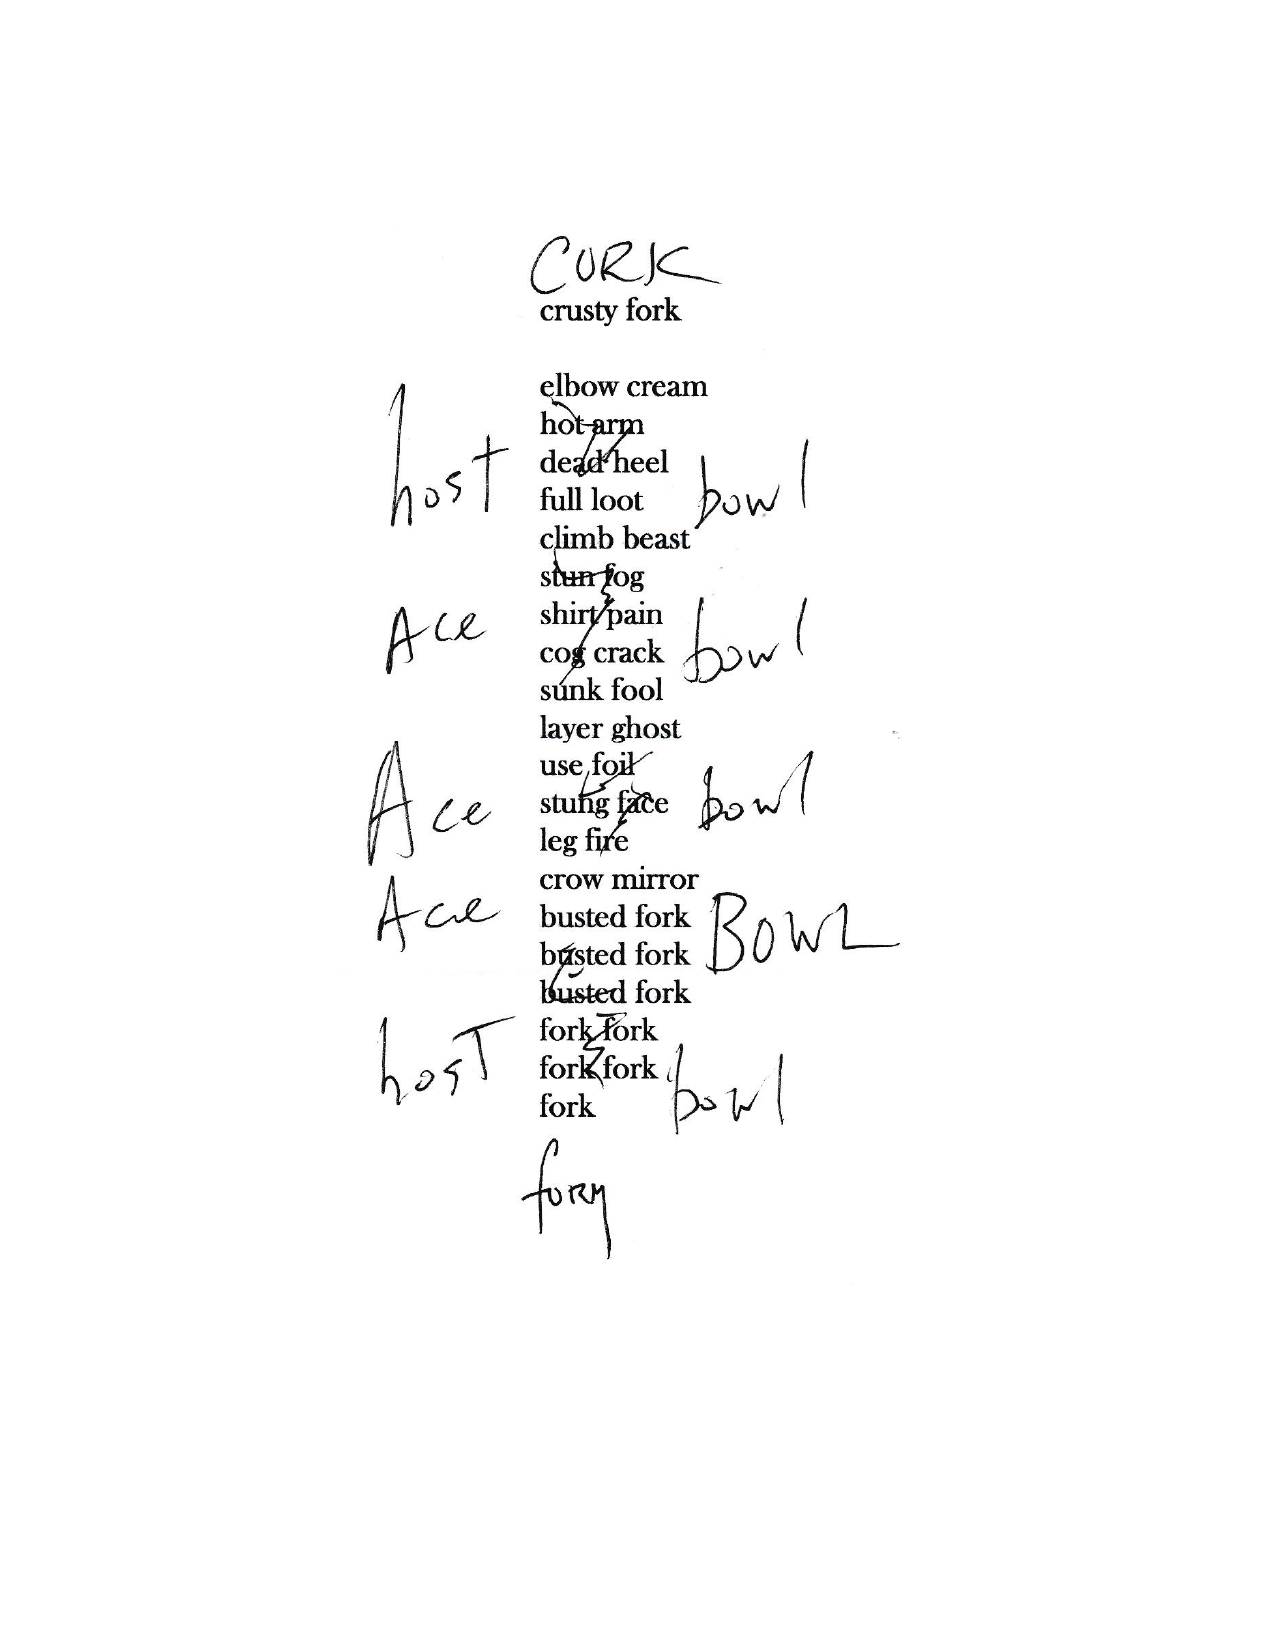 CORK
crusty fork
elbow cream
hot arm
host dead heel bowl
full loot
climb beast
stun fog
Ace shirt pain bowl
cog crack
sunk fool
layer ghost
use foil
Ace stung face bowl
leg fire
crow mirror
Ace busted fork BOWL
busted fork
busted fork
fork fork
hosT fork fork bowl
fork
form